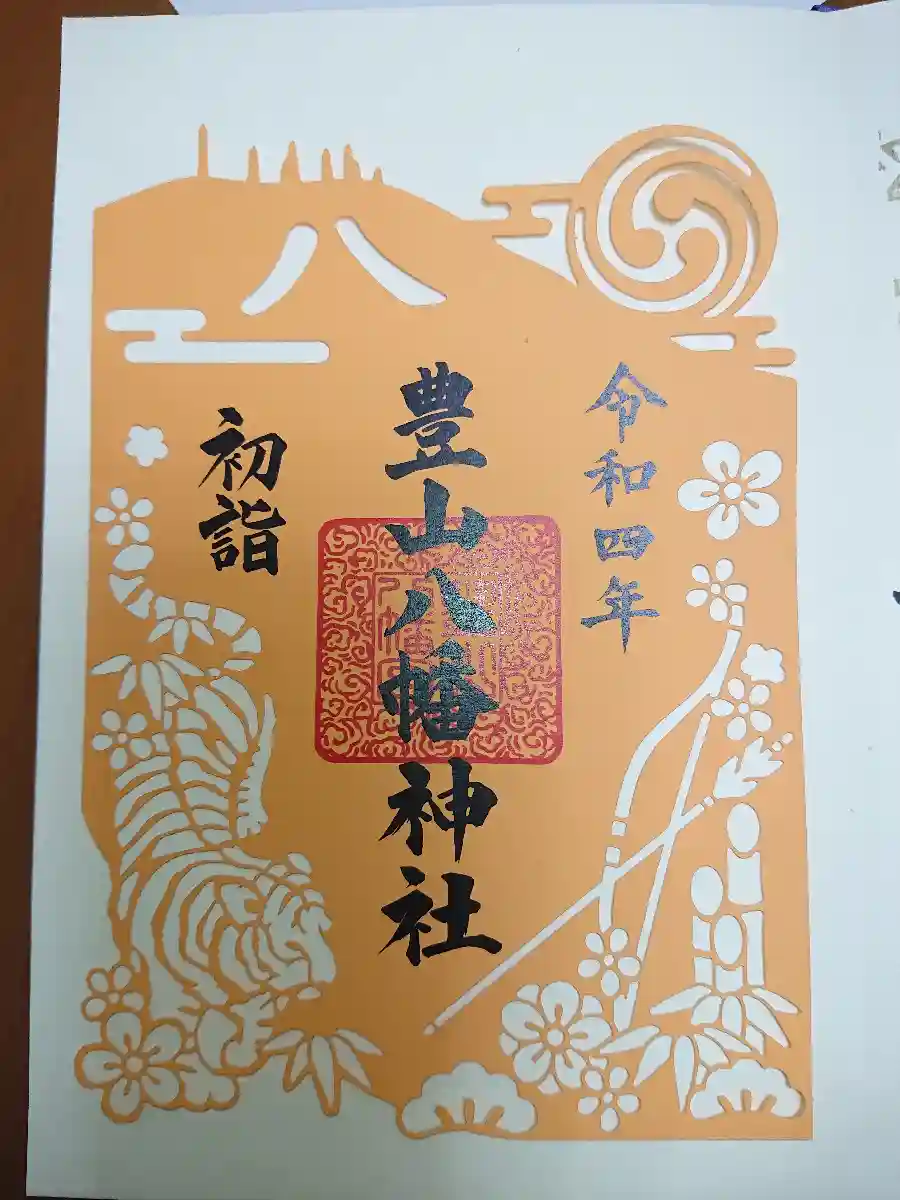 八
令和四年
豊山八幡神社
初詣